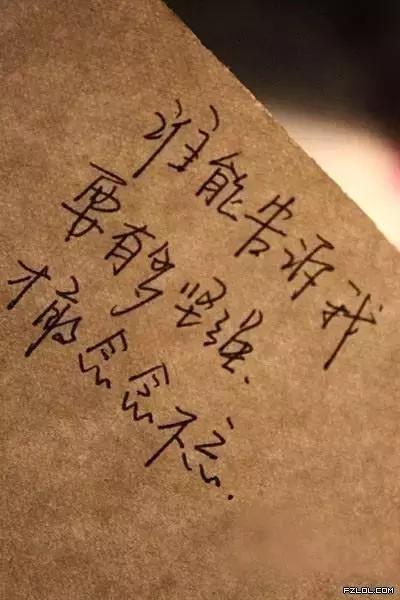 谁能告诉我
要有多坚强
才敢念念不忘.
PZLOL.COM